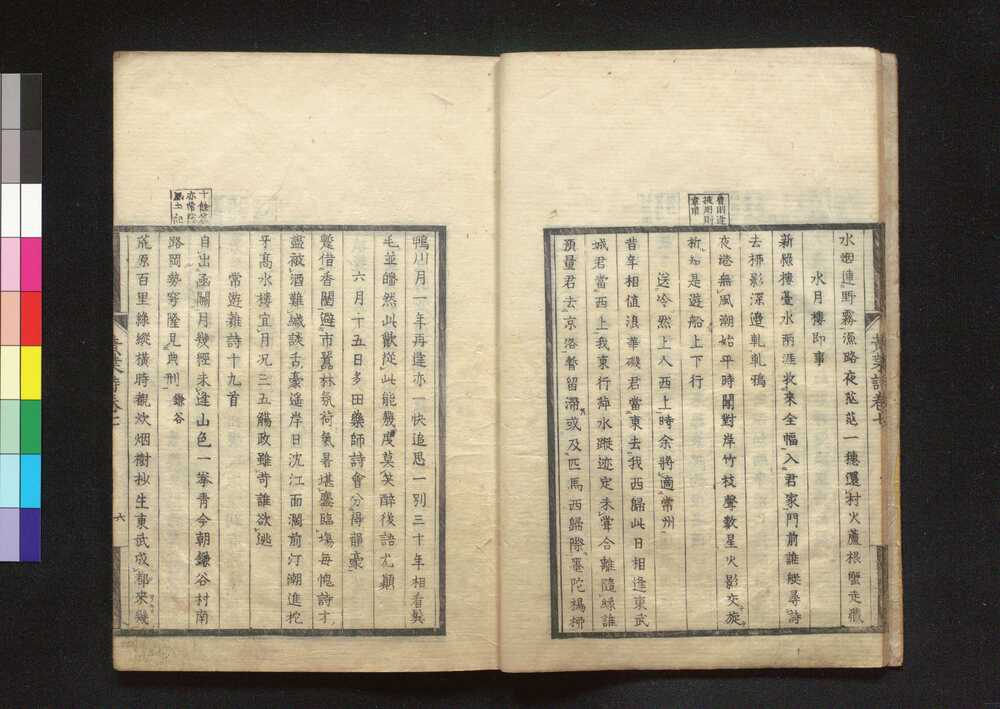 水烟連野霧漁路夜茫茫一穗還村火蘆根蟹走藏
水月樓即事
新照樓臺水兩涯收來全幅入君家門前誰艤尋詩
去棹影深邊軋軋鴉
夜港無風潮始平時聞對岸竹枝聲數星火影交旋
折知是遊船上下行
送冷然上人西上時余將適常州
昔年相值浪華磯君當東去我西歸此日相逢東武
城君當西上我東行萍水蹤迹定未嘗合離隨緣誰
預量君去京洛暫留滯或及匹馬西歸際墨陀楊柳
鴨川月一年再逢亦一快追思一別三十年相看鬢
毛並皤然此歡從此能幾度莫笑醉後語尤顛
六月十五日多田藥師詩會分得韻豪
蹩借香閣避市囂林氛荷氣暑堪鏖臨場每愧詩才
盡敵酒難緘談舌豪遙岸日沈江面濶前汀潮進柁
牙高水樓宜月况三五觴政雖苛誰欲逃
常遊雜詩十九首
自出函關月幾經未逢山色一拳青今朝鎌谷村南
路岡勢穹窿見典刑 鎌谷
荒原百里綠縱橫時觀炊烟樹抄生東武成都來幾
黃葉詩卷七
六